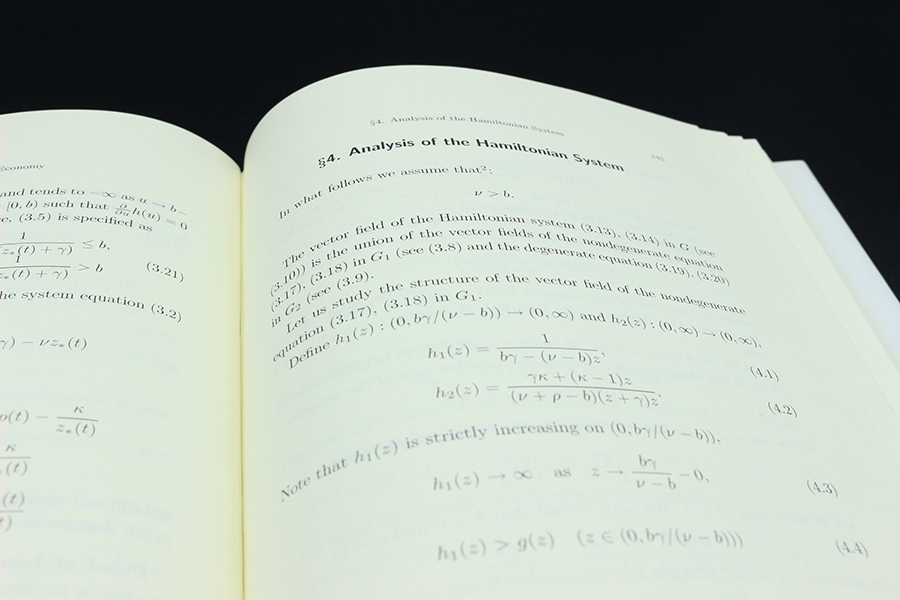 Economy
and tends to −∞ as u → b −
[0, b) such that ∂/∂u h(u) = 0
(3.5) is specified as
1/(z*(t) + γ) ≤ b,
1/(z*(t) + γ) > b (3.21)
he system equation (3.2)
γ) − νz*(t)
(t) − κ/z*(t)
κ/(t)
(t)
§4. Analysis of the Hamiltonian System
§4. Analysis of the Hamiltonian System
In what follows we assume that²:
ν > b.
The vector field of the Hamiltonian system (3.13), (3.14) in G (see
(3.10)) is the union of the vector fields of the nondegenerate equation
(3.17), (3.18) in G₁ (see (3.8) and the degenerate equation (3.19), (3.20)
in G₂ (see (3.9).
Let us study the structure of the vector field of the nondegenerate
equation (3.17), (3.18) in G₁.
Define h₁(z) : (0, bγ/(ν − b)) → (0, ∞) and h₂(z) : (0, ∞) → (0, ∞),
h₁(z) = 1/(bγ − (ν − b)z), (4.1)
h₂(z) = (γκ + (κ − 1)z)/((ν + ρ − b)(z + γ)z). (4.2)
Note that h₁(z) is strictly increasing on (0, bγ/(ν − b)),
h₁(z) → ∞ as z → bγ/(ν − b) − 0, (4.3)
h₁(z) > g(z) (z ∈ (0, bγ/(ν − b))) (4.4)